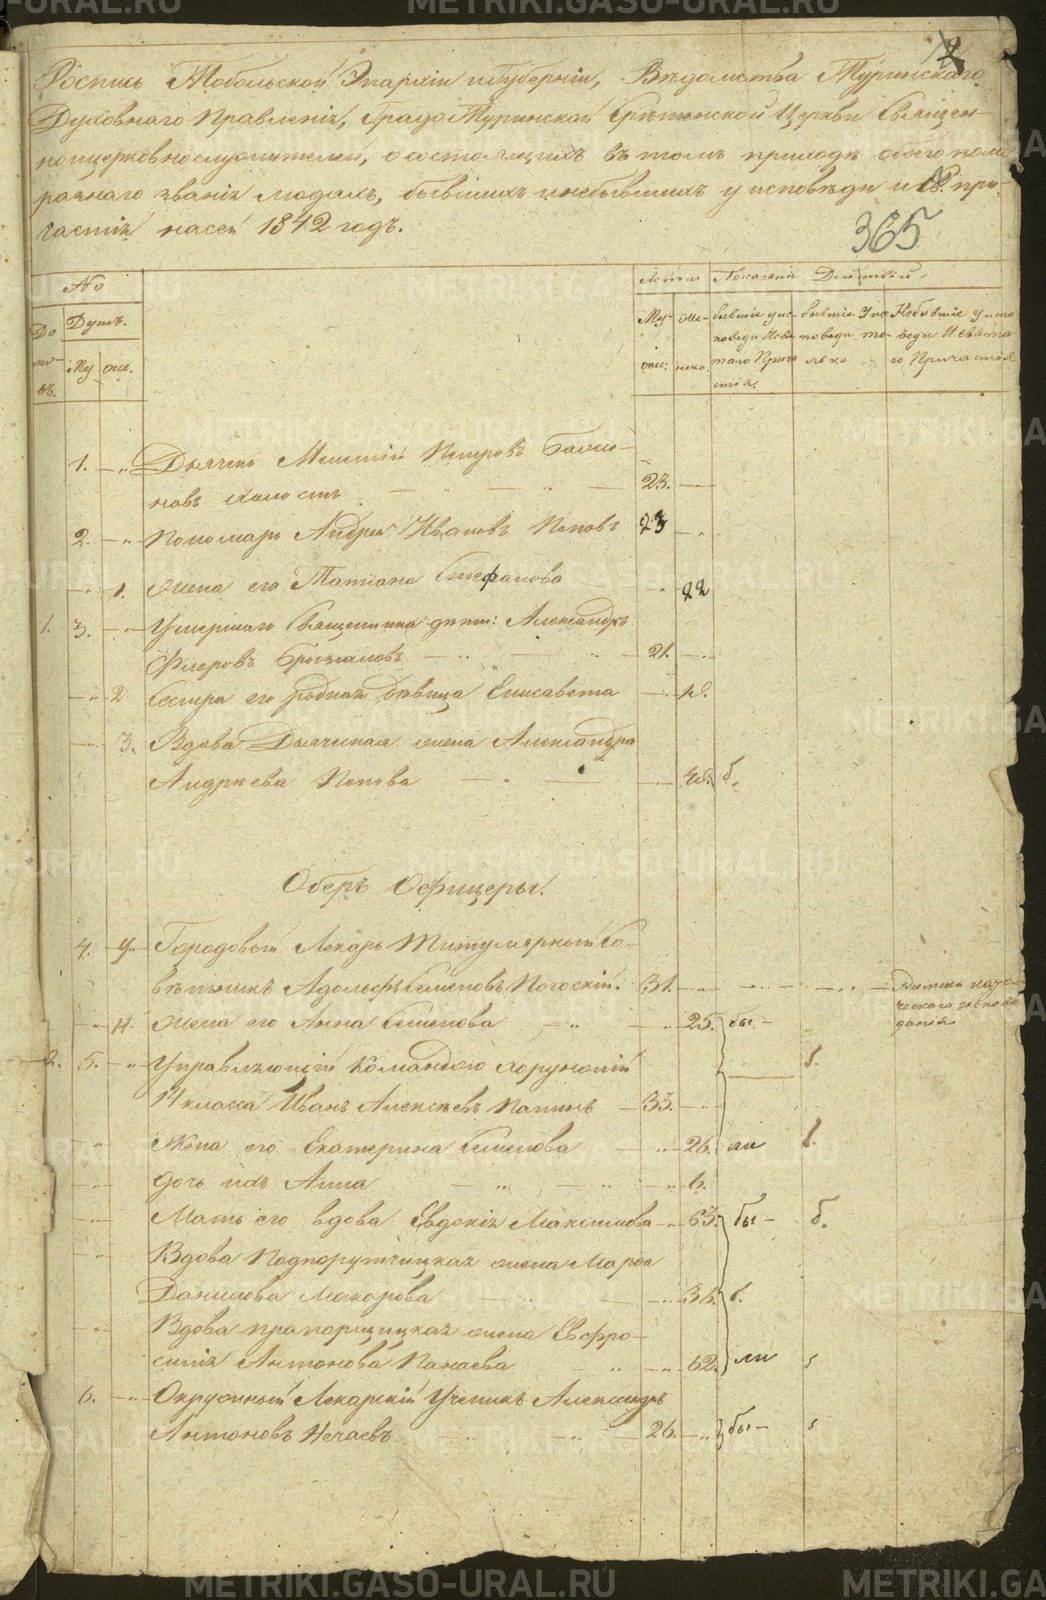 2
Роспись Тобольской Эпархіи и Губерніи, Вѣдомства Туринскаго
Духовнаго Правленія, Града Туринска Срѣтенской Церкви Священ-
ноцерковнослужителей, о состоящихъ въ томъ приходѣ обоего пола
разнаго званія людахъ, бывшихъ и небывшихъ у исповѣди и Св. при-
частія насей 1842 годъ.
365
№
Лѣта Показаніе Действій
До
мо-
въ.
Душъ.
Му
же.
Му-
жес:
Же-
нско.
бывшіе у ис-
поведи и Свя-
таго Прича
стія.
бывшіе у ис-
поведи то-
лько
Небывшіе у испо
веди и Свята
го Причастія
1. Дьячекъ Мелетій Петровъ
новъ холостъ 23.
2. Пономарь Андрей Ивановъ Поповъ 23
1. Жена его Татіана Стефанова 22
1. 3. Умершаго Священника дѣти: Александръ
Флоровъ 21.
2 Сестра его родная дѣвица Елисавета
3. Вдова Дьяческая жена Александра
Андреева Попова б.
Оберъ Офицеры.
4. Городовый Лекарь Титулярный Со-
вѣтникъ Адольфъ Семеновъ Погоскій. 31. Римско като-
ческаго испове
данія
4. Жена его Анна Семенова 25. бы-
2. 5. Управляющій Командою Хорунжій
14 класса Иванъ Алексѣевъ Папинъ 33.
Жена его Екатерина Семенова 26. ли
дочь ихъ Анна 6.
Мать его вдова Евдокія Максимова 63. бы- б.
Вдова Подпорутчицкая жена Марѳа
Данилова Макарова 36.
Вдова прапорщицкая жена Евфро-
синія Антонова Панаева 62. ли
6. Окружный Лекарскій Ученикъ Александръ
Антоновъ Нечаевъ 26. бы-
METRIKI.GASO-URAL.RU